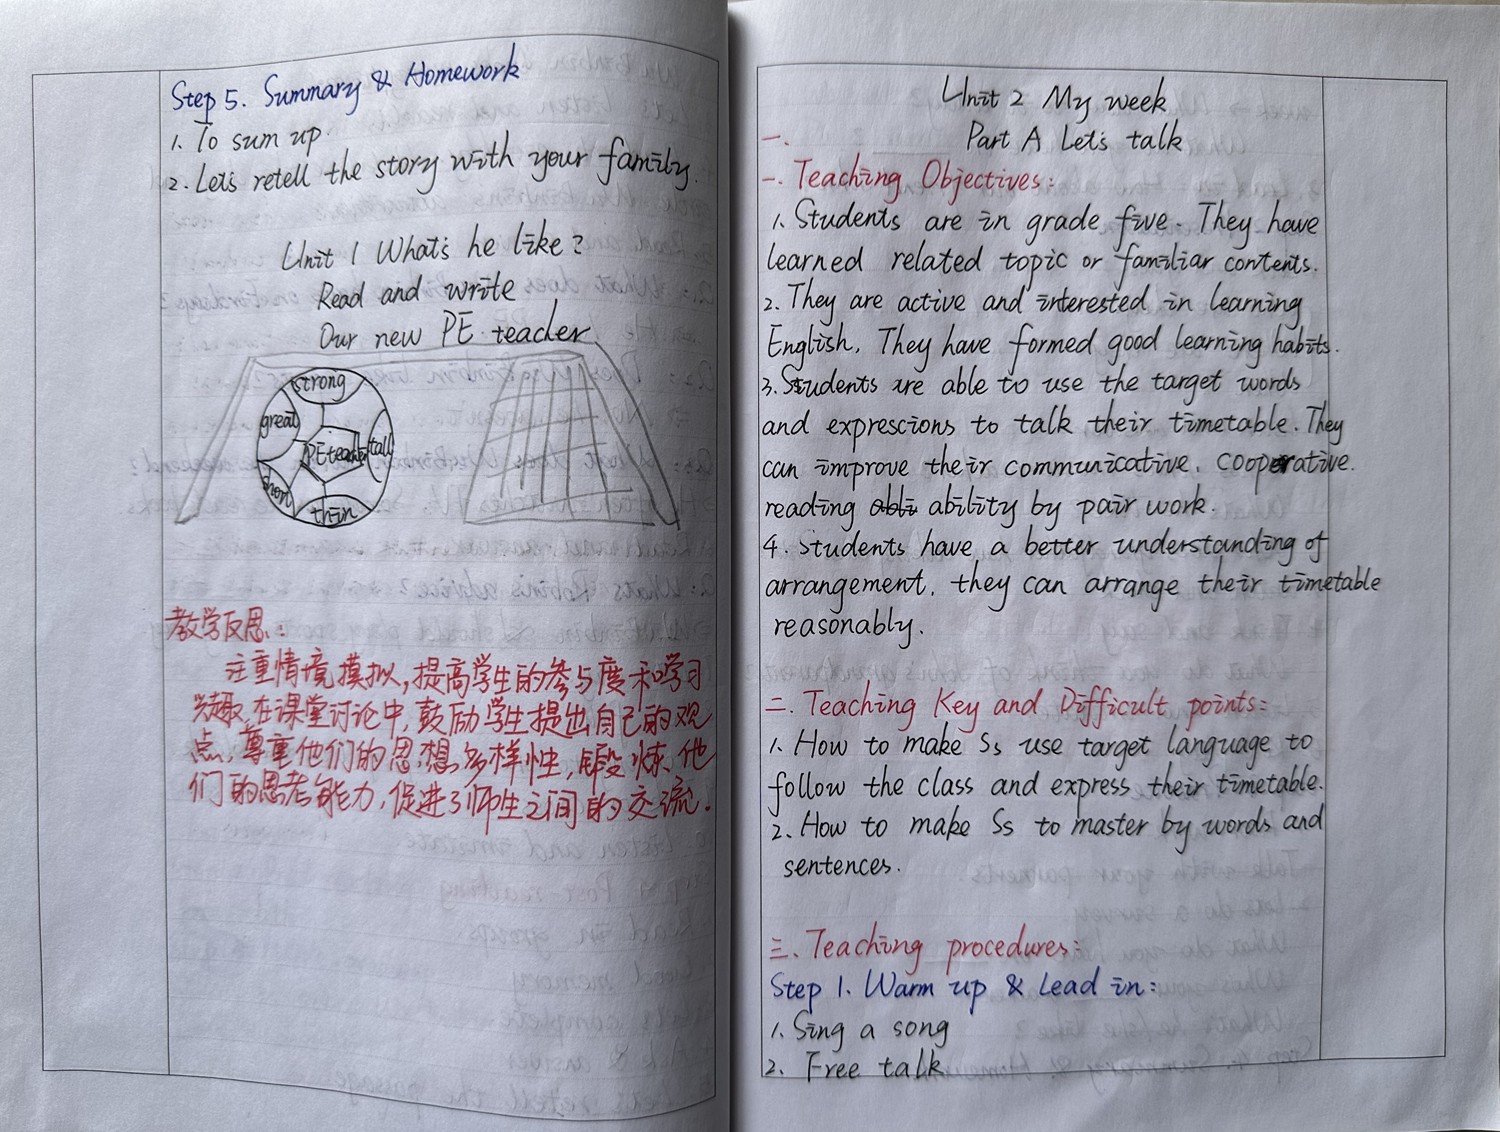 Step 5. Summary & Homework
1. To sum up.
2. Let's retell the story with your family.
Unit 1 What's he like?
Read and write
Our new PE teacher
strong
great
PE teacher
tall
short
thin
教学反思:
注重情境模拟,提高学生的参与度和学习
兴趣,在课堂讨论中,鼓励学生提出自己的观
点,尊重他们的思想多样性,锻炼他
们的思考能力,促进了师生之间的交流.
Unit 2 My week
一.
Part A Let's talk
一. Teaching Objectives:
1. Students are in grade five. They have
learned related topic or familiar contents.
2. They are active and interested in learning
English, They have formed good learning habits.
3. Students are able to use the target words
and exprescions to talk their timetable. They
can improve their communicative, cooperative.
reading abli ability by pair work.
4. Students have a better understanding of
arrangement, they can arrange their timetable
reasonably.
二. Teaching Key and Difficult points:
1. How to make Ss use target language to
follow the class and express their timetable.
2. How to make Ss to master by words and
sentences.
三. Teaching procedures:
Step 1. Warm up & Lead in:
1. Sing a song
2. Free talk